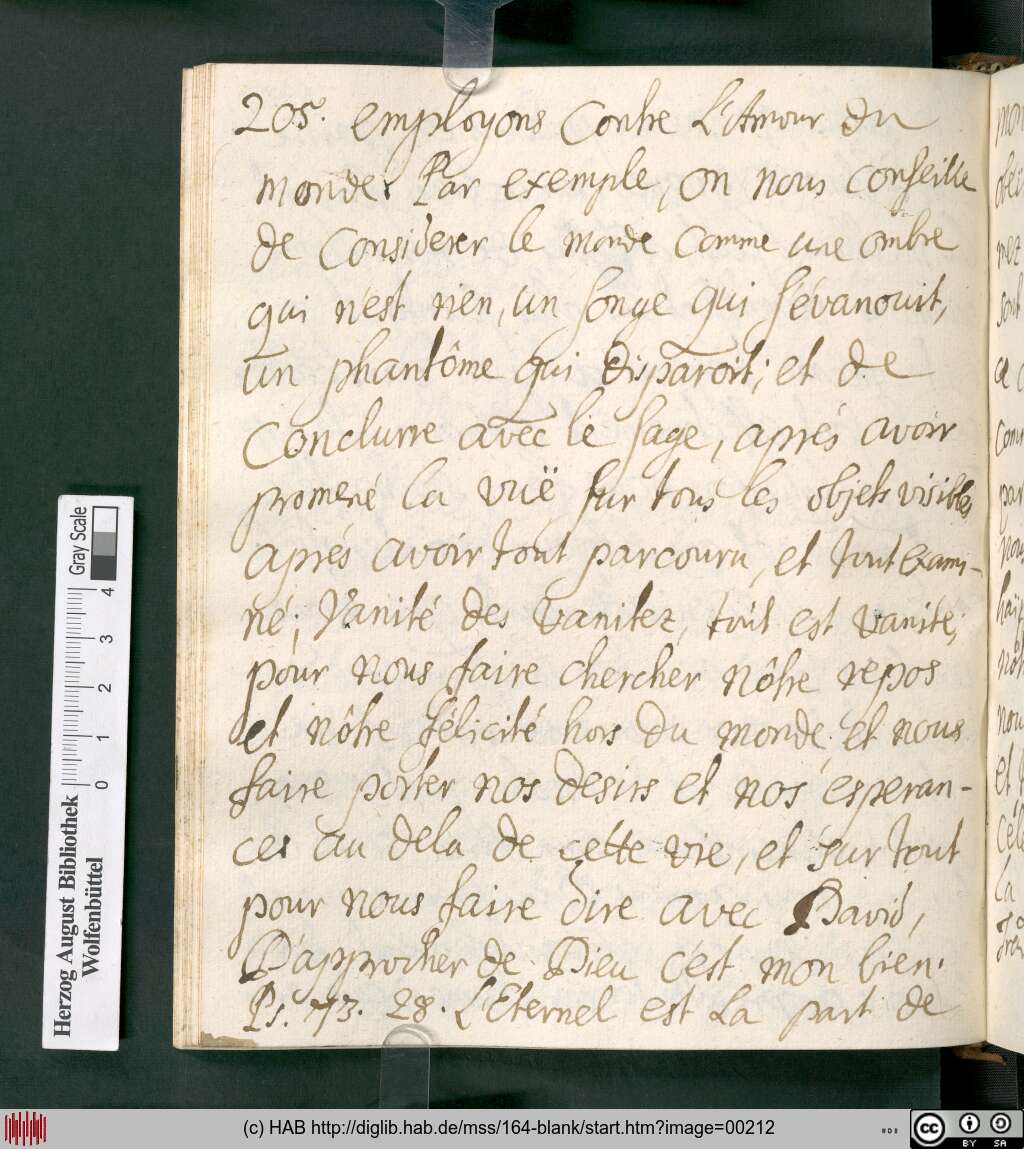 205. employons Contre L'Amour du
monde. Par exemple, on nous conseille
de Considerer le monde comme une ombre
qui n'est rien, un songe qui s'évanouit,
un phantôme qui disparoit; et de
Conclurre avec le sage, aprés avoir
promené la vuë sur tous les objets visibles
aprés avoir tout parcouru, et tout exami-
né; Vanité des vanitez, tout est vanité;
pour nous faire chercher nôtre repos
et nôtre félicité hors du monde. et nous
faire porter nos desirs et nos esperan-
ces au dela de cette vie, et sur tout
pour nous faire dire avec David,
D'approcher de Dieu c'est mon bien.
Ps. 73. 28. L'Eternel est La part de
Herzog August Bibliothek
Wolfenbüttel
Gray Scale
0 1 2 3 4
(c) HAB http://diglib.hab.de/mss/164-blank/start.htm?image=00212
CC BY SA